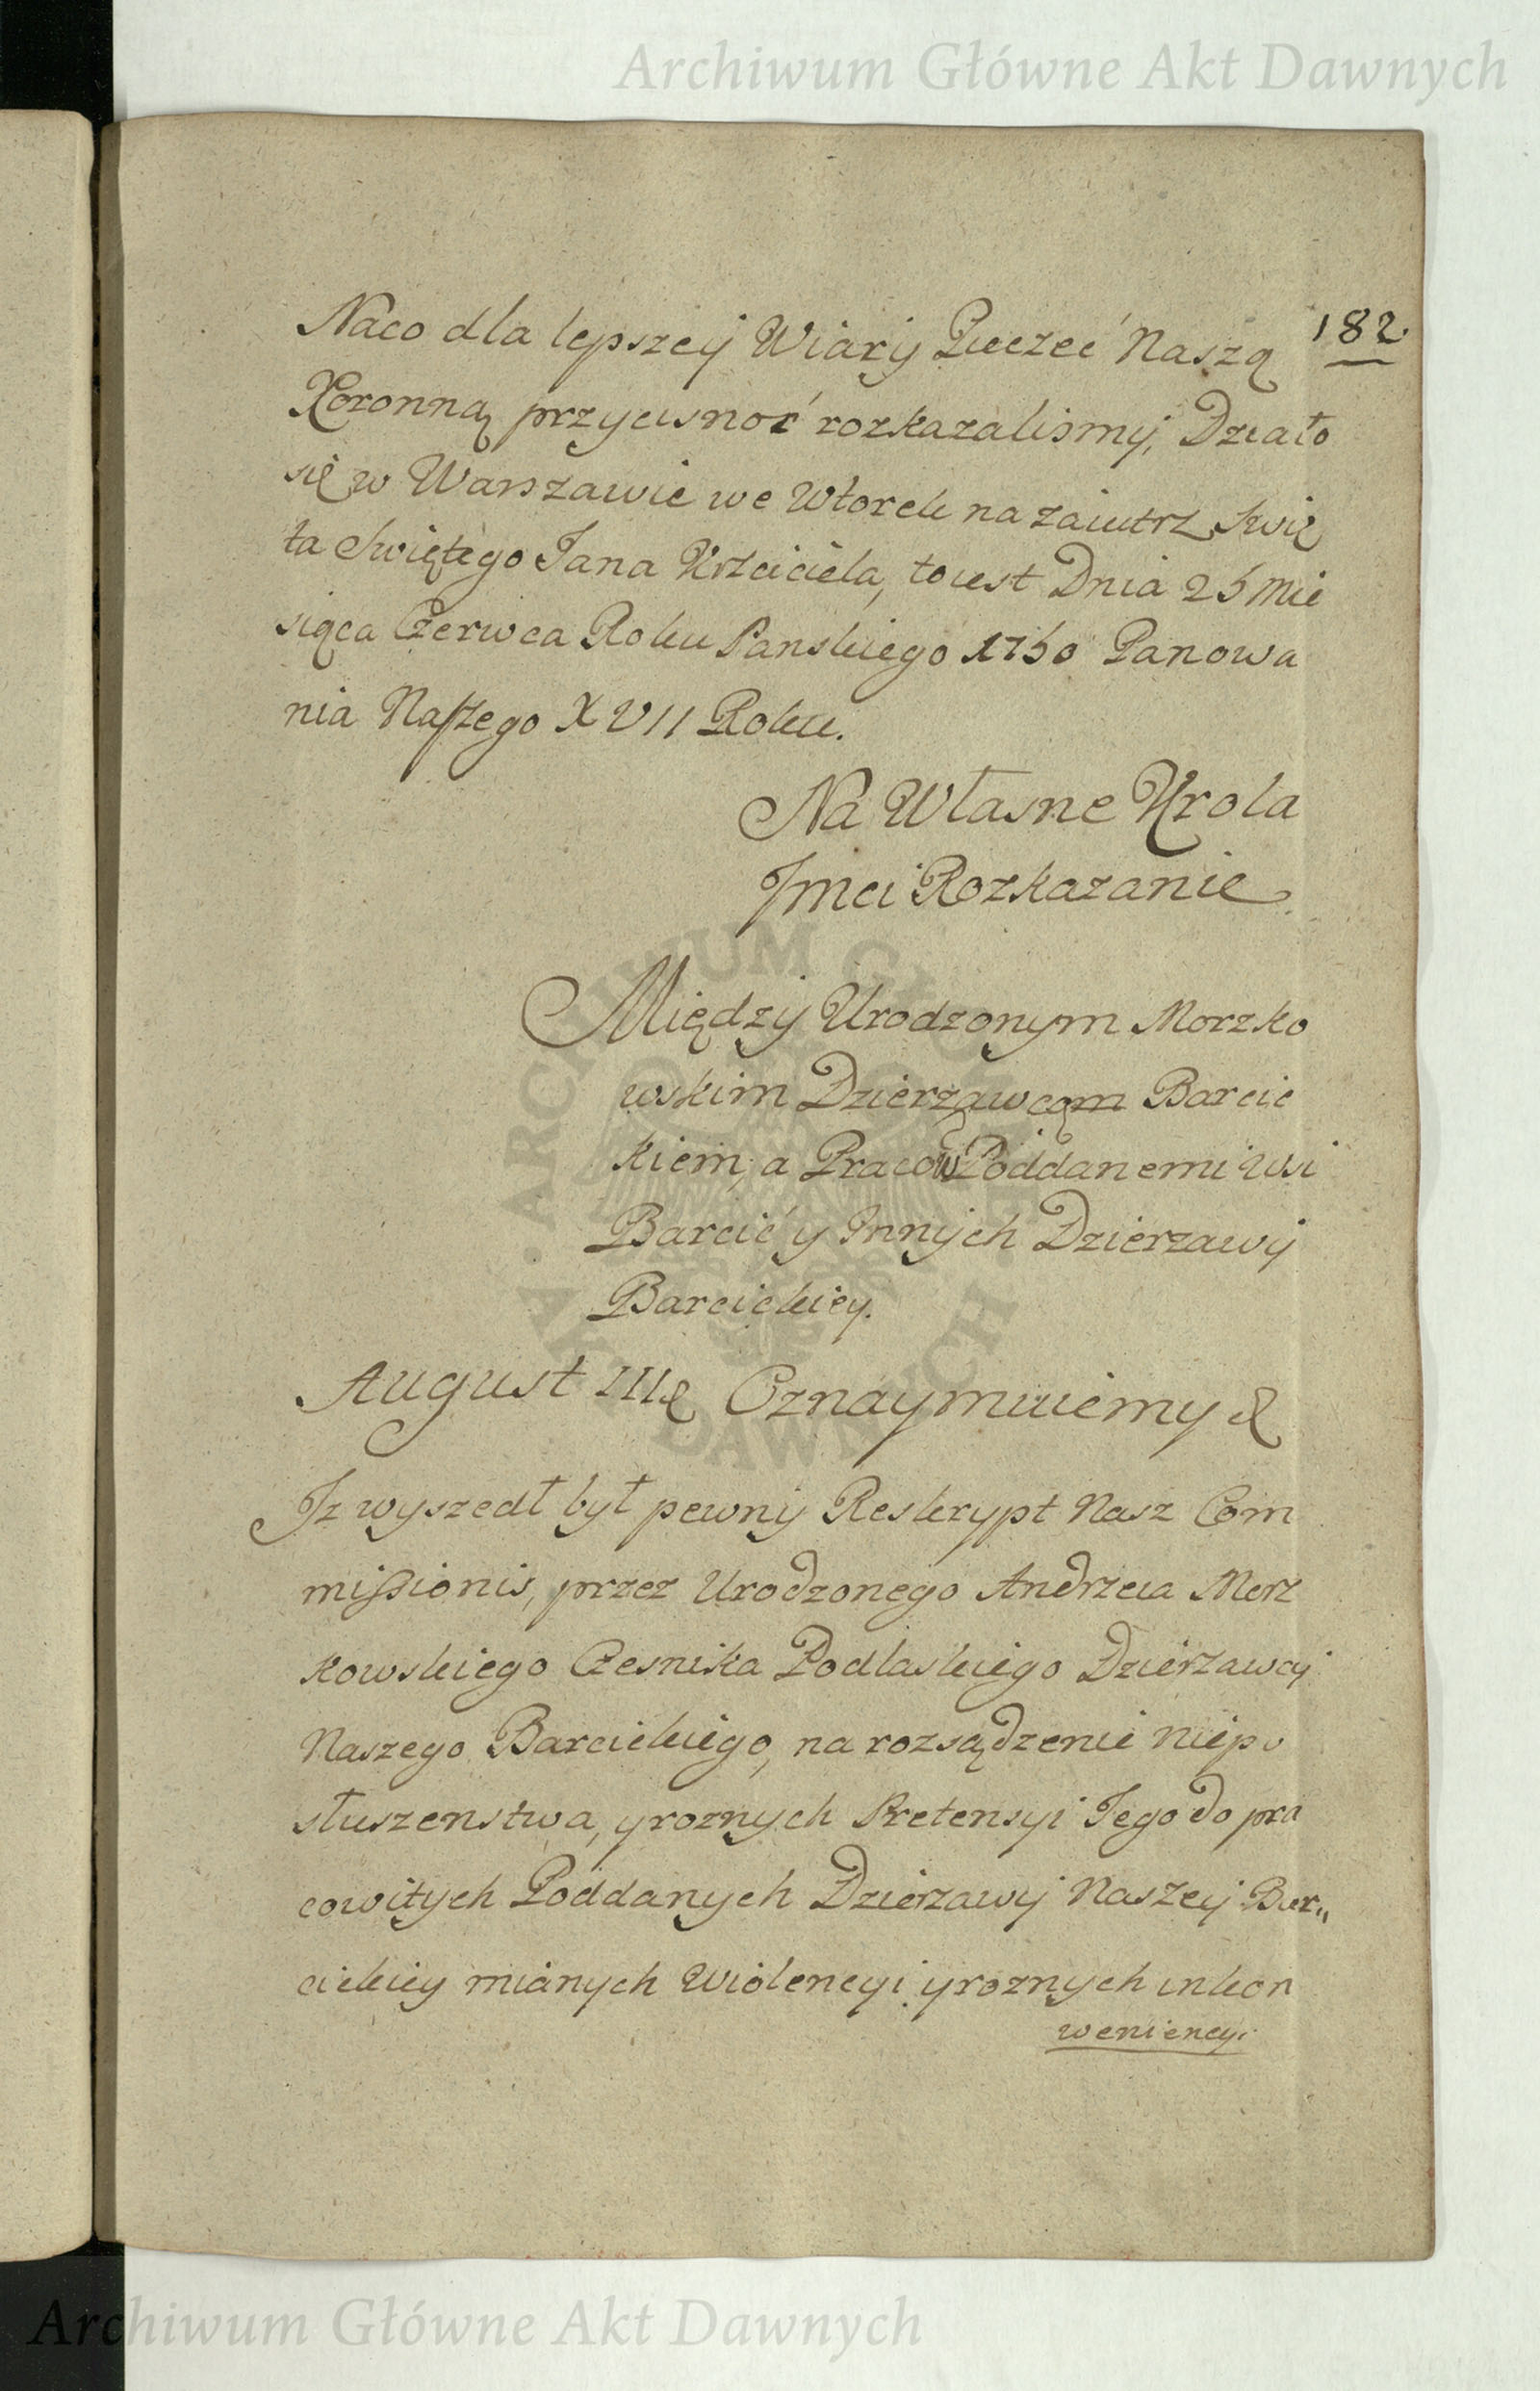 Archiwum Główne Akt Dawnych
182
Naco dla lepszey Wiary Pieczeć Naszą
Koronną przycisnoć rozkazalismy, Działo
się w Warszawie we Wtorek na zaiutrz Swię
ta Swiętego Jana Krzciciela, toiest Dnia 25 Mie
siąca Czerwca Roku Panskiego 1750 Panowa
nia Naszego XVII Roku.
Na Własne Krola
Jmci Rozkazanie
Między Urodzonym Morzko
wskim Dzierzawcąm Barcic
kiem, a Pracow Poddanemi wsi
Barcić y Innych Dzierzawy
Barcickiey.
August III& Oznaymuiemy &
Jz wyszedł był pewny Reskrypt Nasz Com
missionis, przez Urodzonego Andrzeia Morz
kowskiego Czesnika Podlaskiego Dzierzawcy
Naszego Barcickiego, na rozsądzenie niepo
słuszenstwa, yroznych Pretensyi Jego do pra
cowitych Poddanych Dzierzawy Naszey Bar„
cickiey mianych Wiolencyi yroznych inkon
weniencyi
ARCHIWUM GŁÓWNE AKT DAWNYCH
Archiwum Główne Akt Dawnych